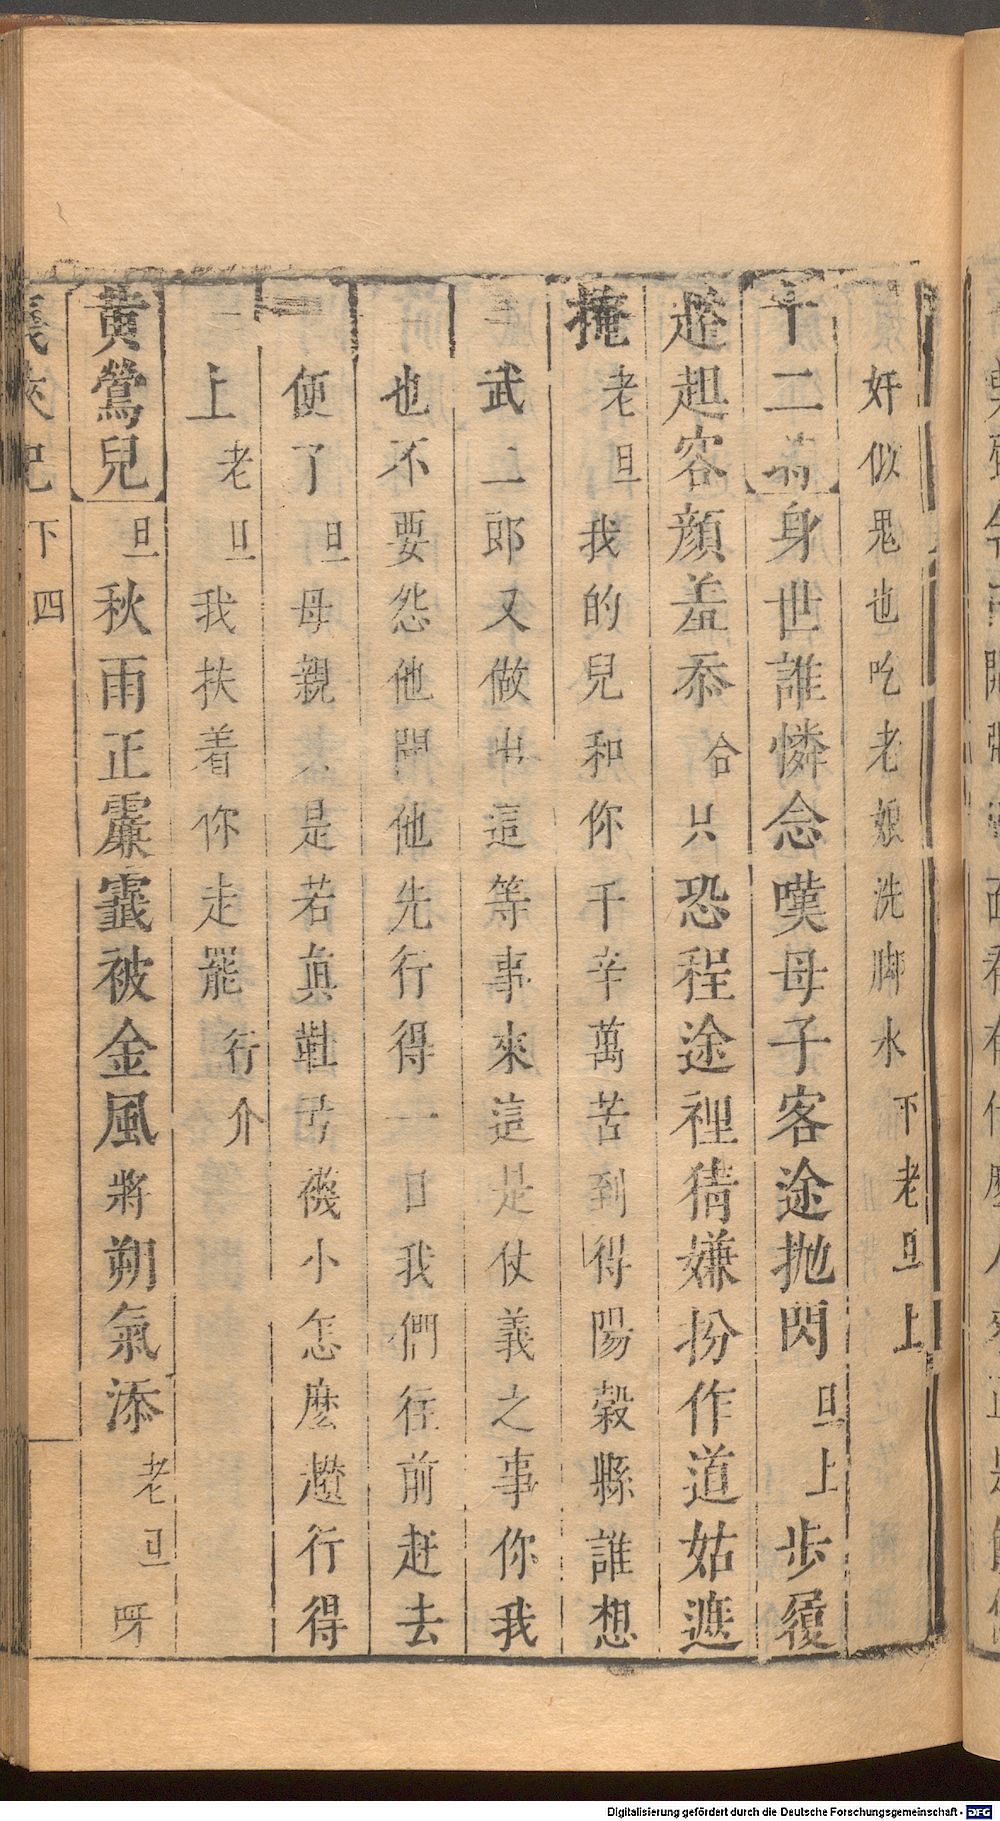 奸似鬼也吃老娘洗脚水下老旦上
十二　身世誰憐念嘆母子客途抛閃旦上步履
趑趄容顔羞忝合只恐程途裡猜嫌扮作道姑遮
掩老旦我的兒和你千辛萬苦到得陽穀縣誰想
武二郎又做出這等事來這是仗義之事你我
也不要怨他閒他先行得一日我們往前赶去
便了旦母親　是若真鞋弓襪小怎麽趲行得
上老旦我扶着你走罷行介
黄鶯兒旦秋雨正簾纎被金風將朔氣添老旦呀
義俠記　下　四
Digitalisierung gefördert durch die Deutsche Forschungsgemeinschaft - DFG